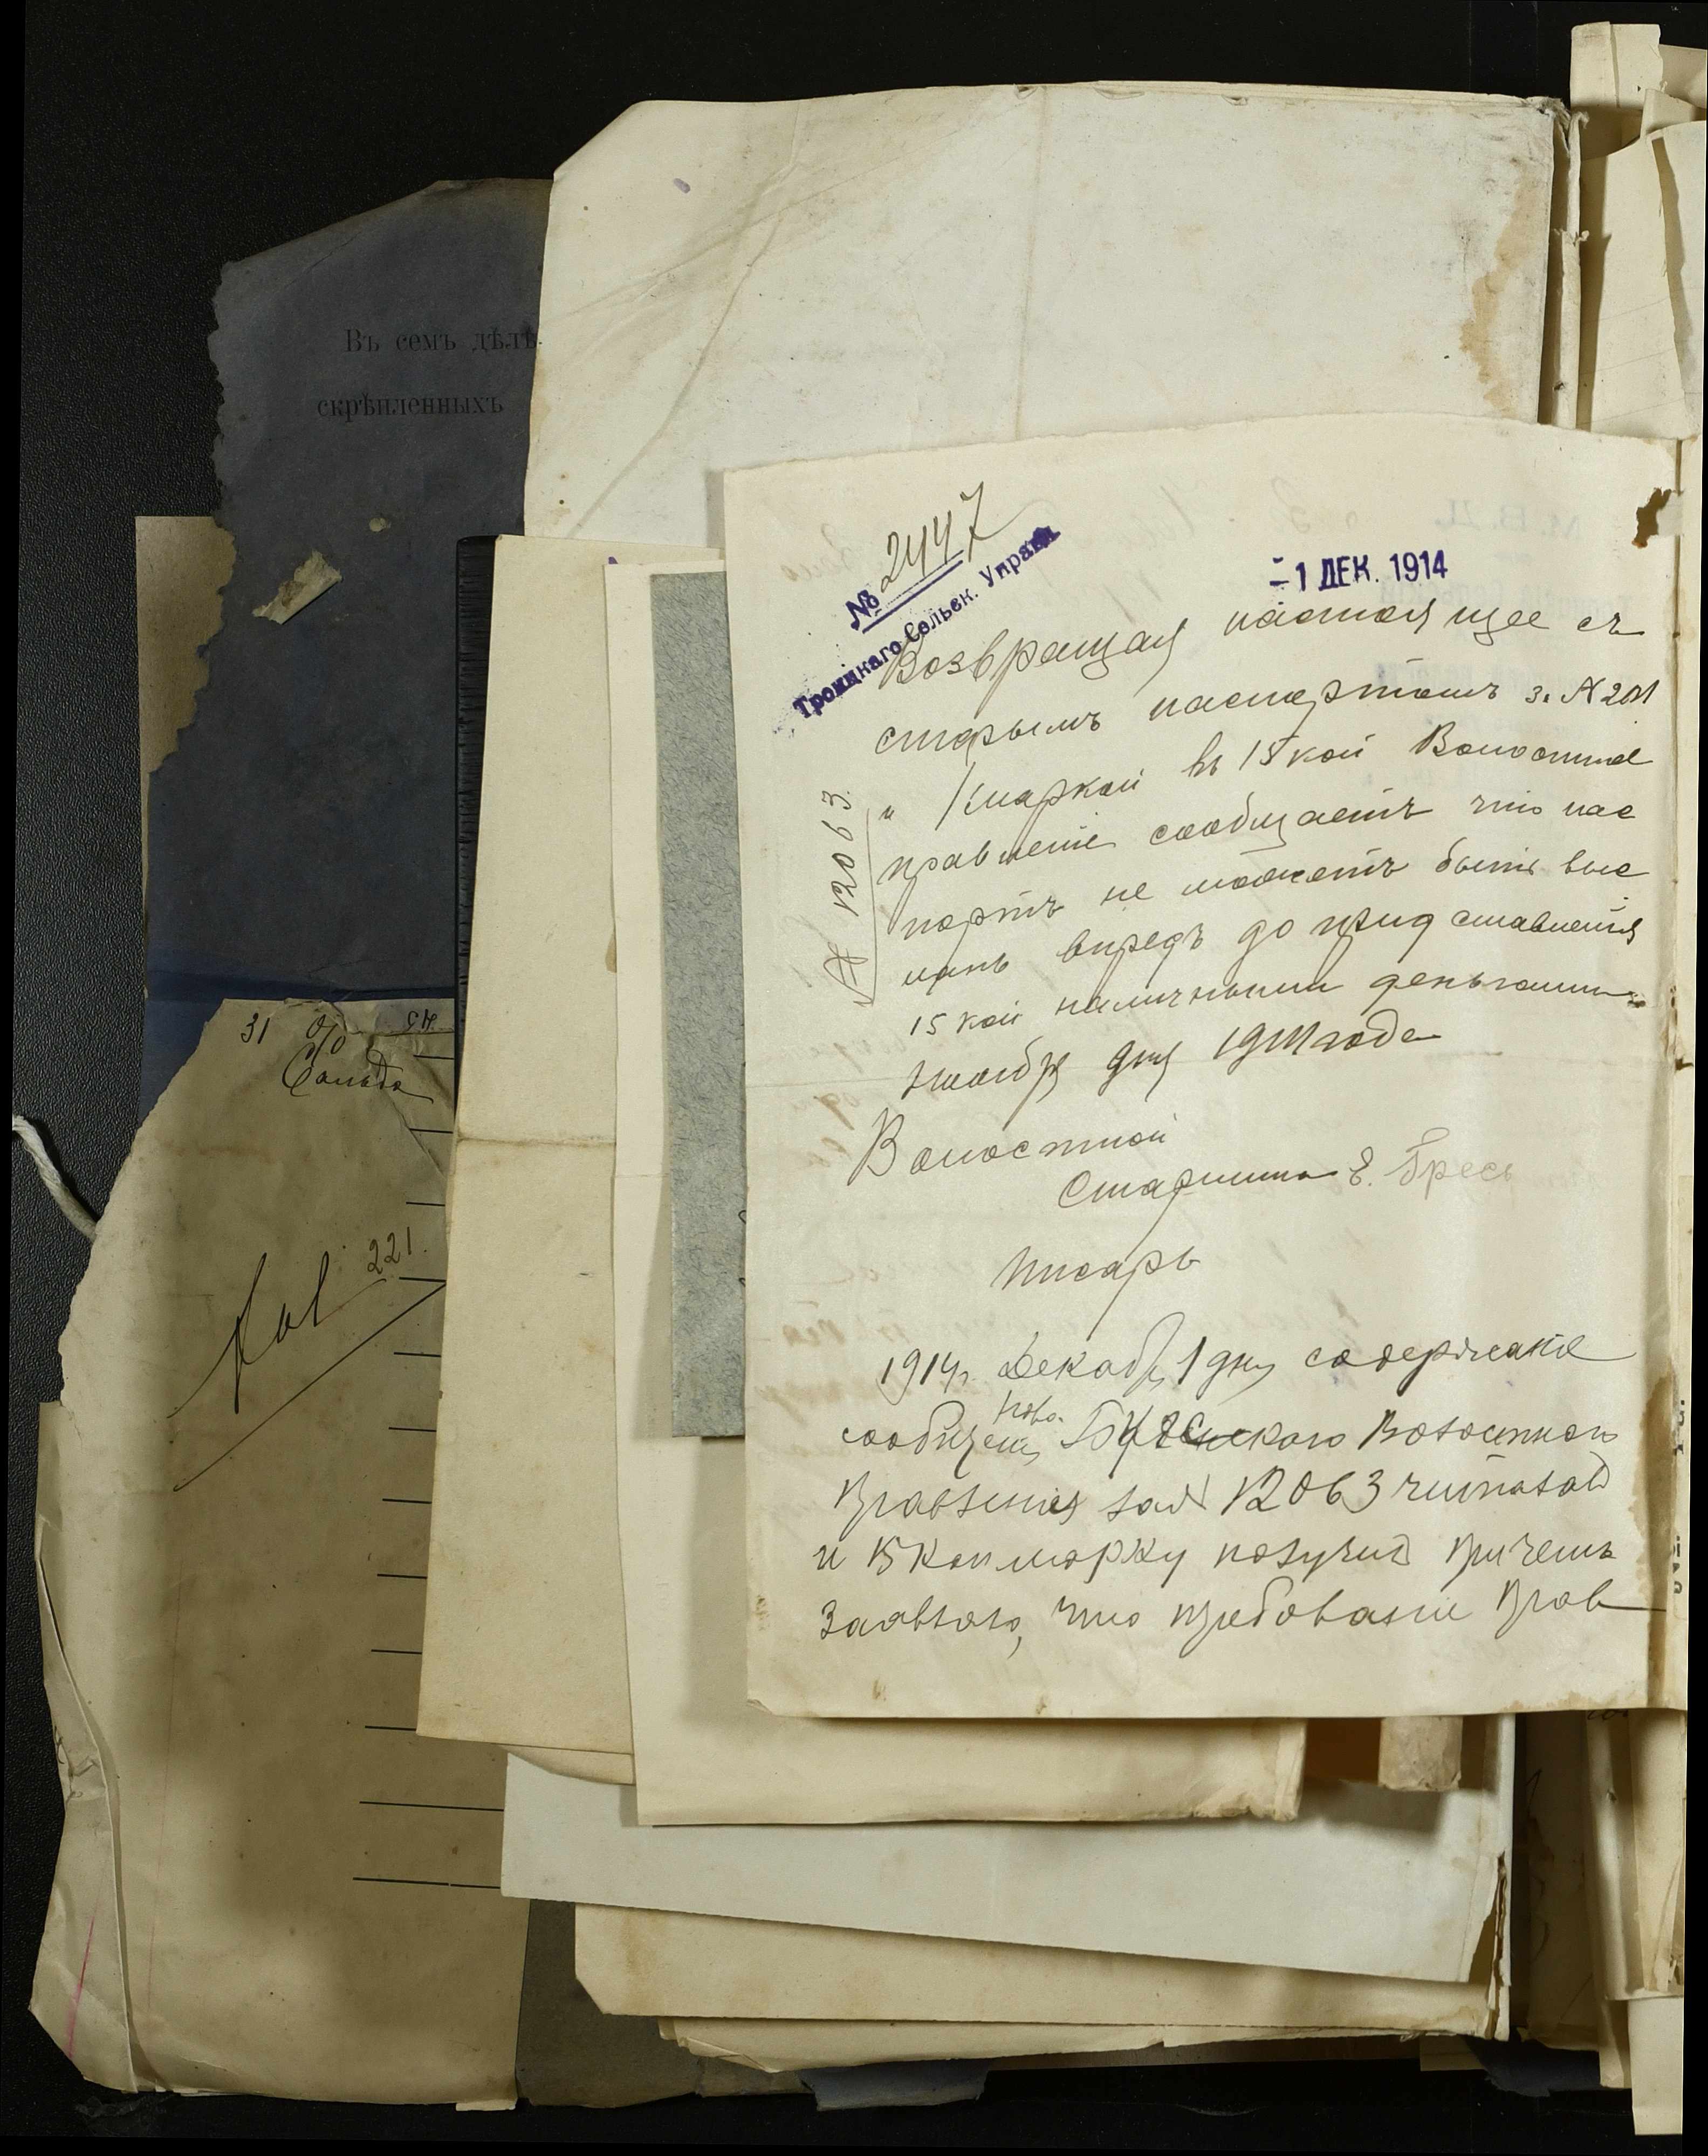 Въ семъ дѣлѣ
скрѣпленныхъ
31 % 
Сальдо
221.
№ 2447
Троицкаго Сельск. Управл
-1 ДЕК. 1914
№ 12063.
Возвращая настоящее съ
старымъ паспортомъ з. №
и 1 маркой въ 15 коп Волостное
правленіе сообщаетъ что пас
портъ не можетъ быть выс
ланъ впредь до придставленія
15 коп наличными деньгами
Ноября дня 1914 года
Волостной
Старшина Е. Бресь
Писарь
1914 г. Декабр 1 дня содержаніе
Ново-
сообщенія Волостного
Правленія за № 12063 читалъ
и 15 коп марку получилъ причемъ
Заявляю, что требованіе Прав